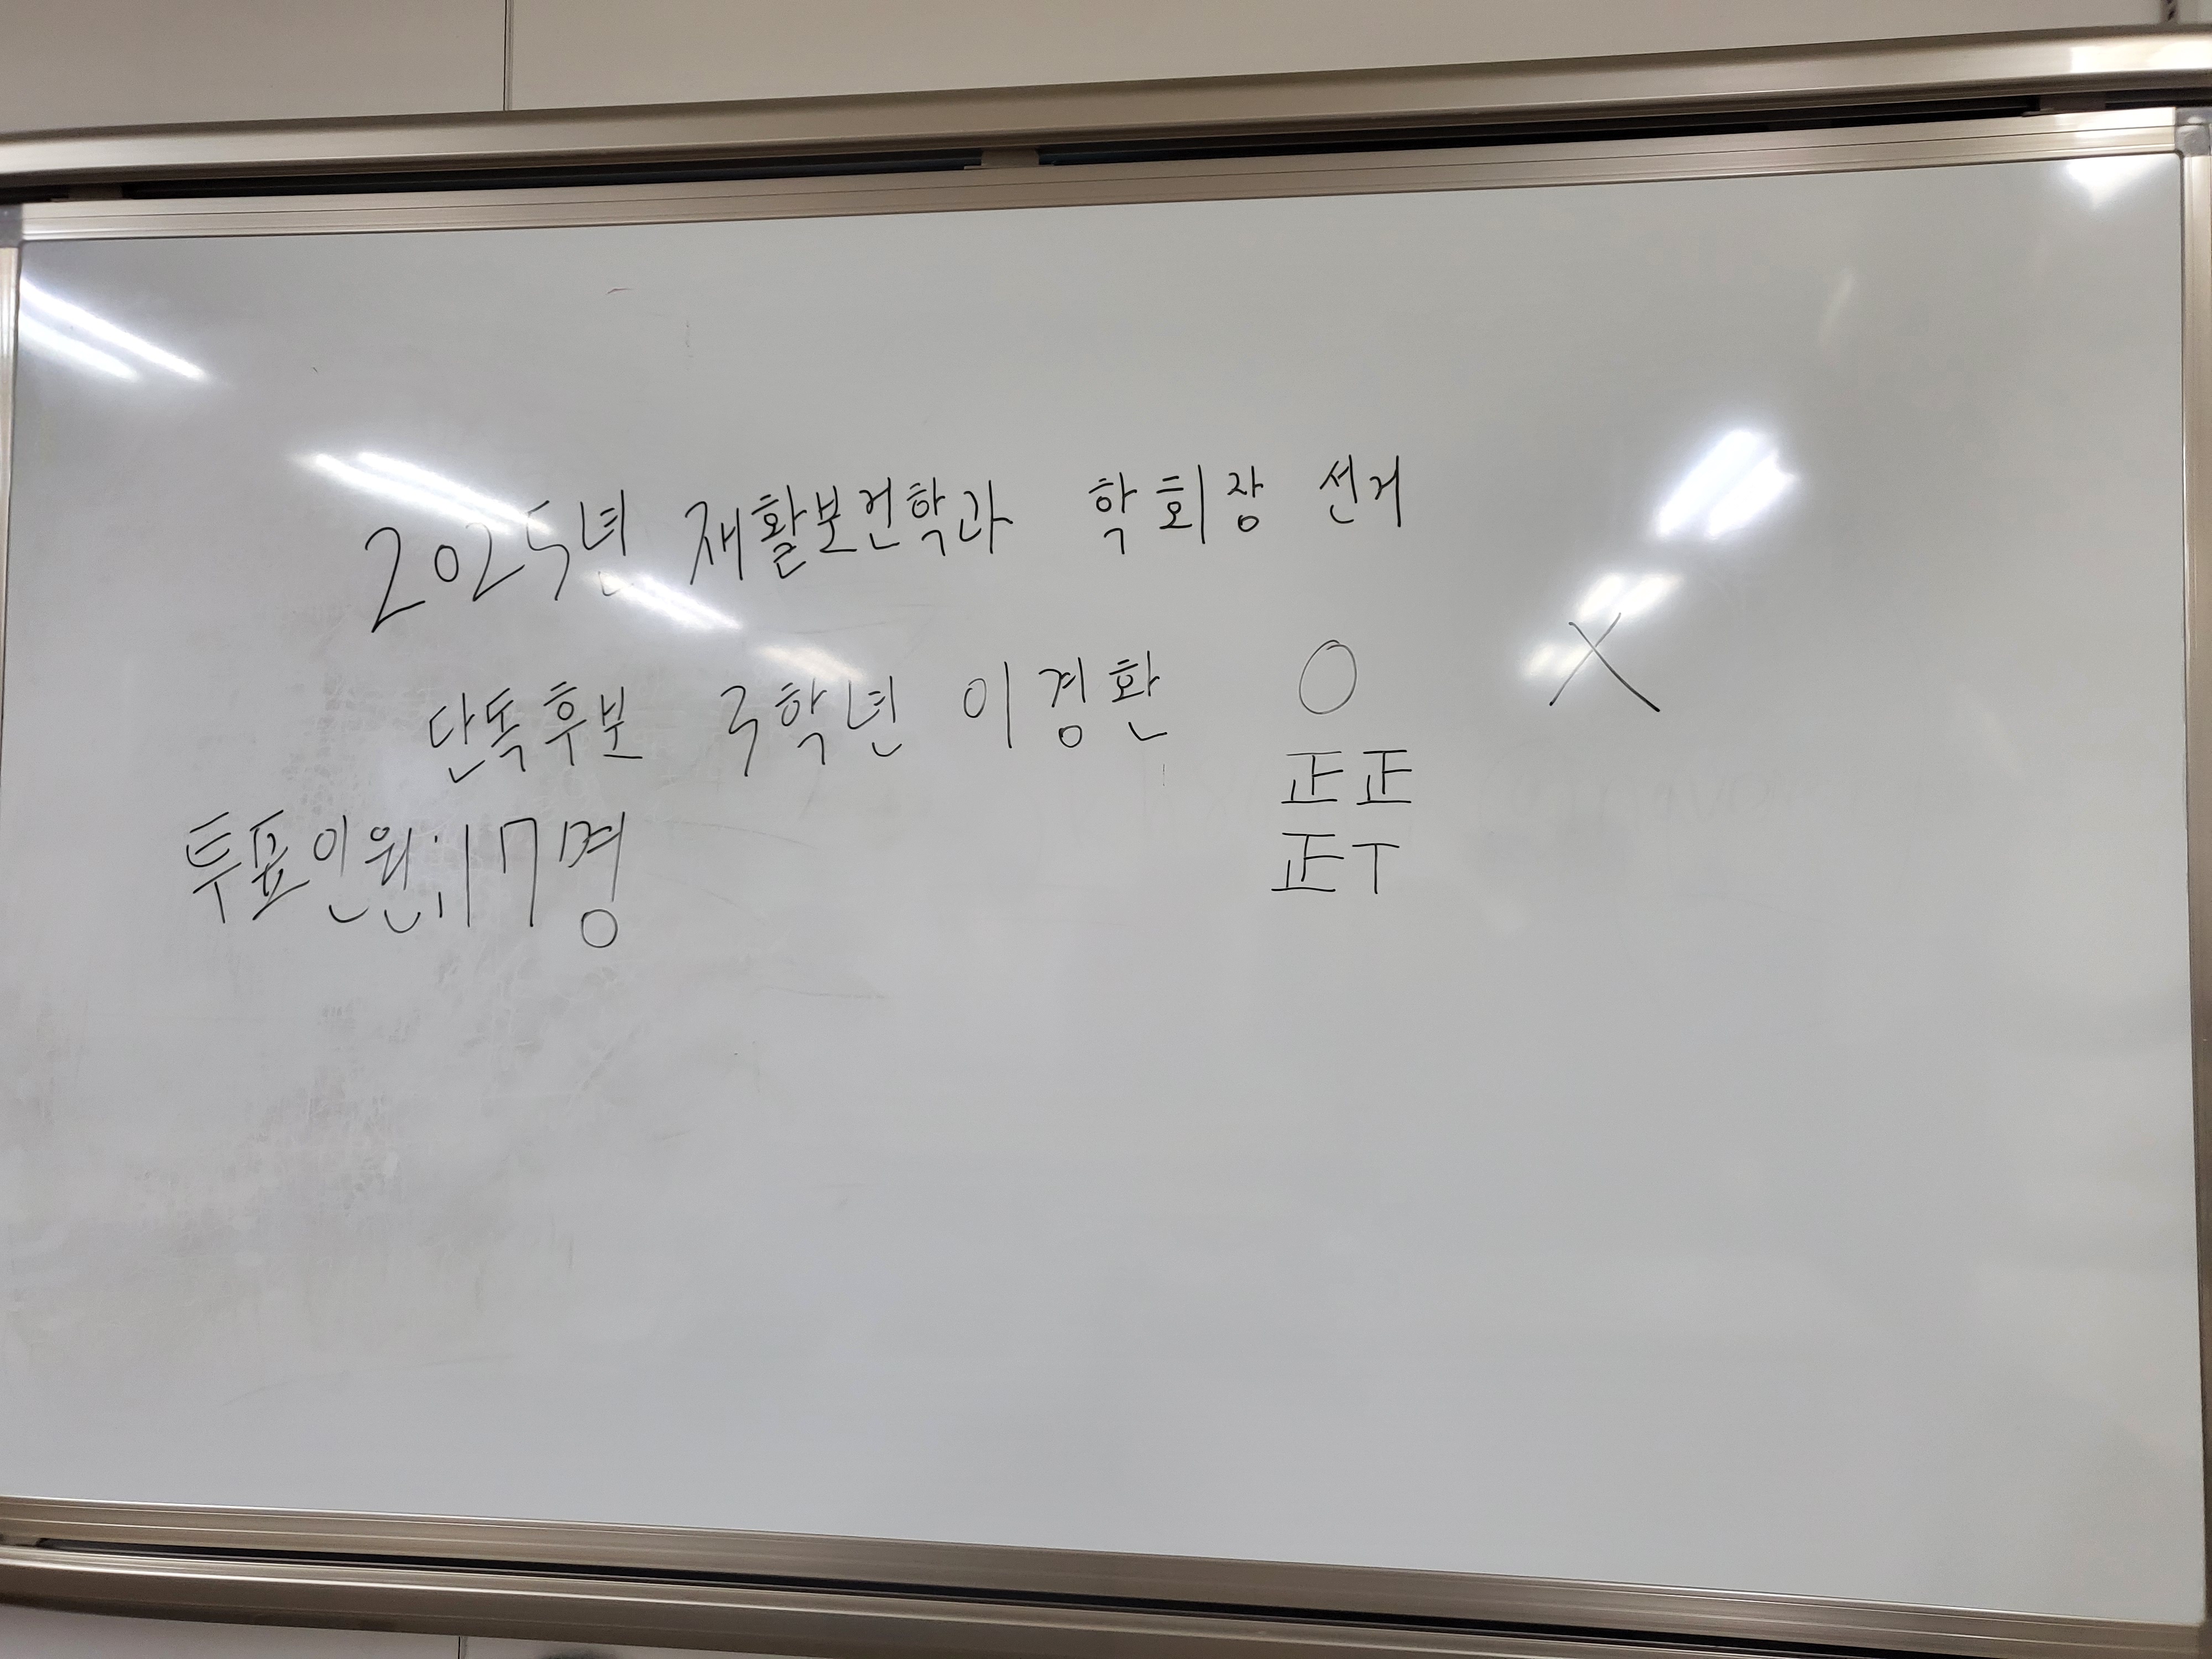 2025년 재활보건학과 학회장 선거
단독후보 3학년 이경환 O X
正正
투표인원:17명
正T